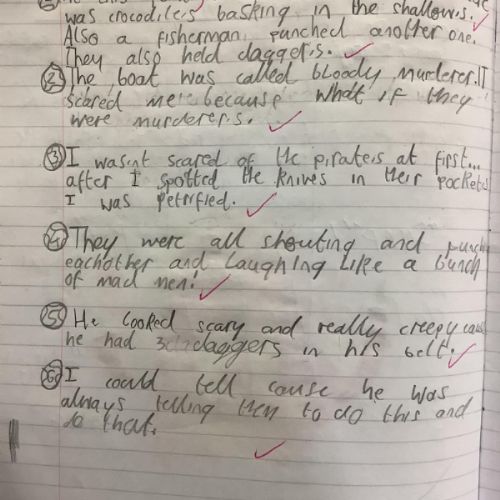 was crocodiles basking in the shallows.
Also a fisherman punched another one.
They also held daggers.
2 The boat was called bloody murderer. It
scared me because what if they
were murderers.
3 I wasnt scared of the pirates at first...
after I spotted the knives in their pockets
I was petrified.
4 They were all shouting and punch
eachother and laughing like a bunch
of mad men.
5 He looked scary and really creepy caus
he had 3 daggers in his belt.
6 I could tell cause he was
always telling them to do this and
do that.